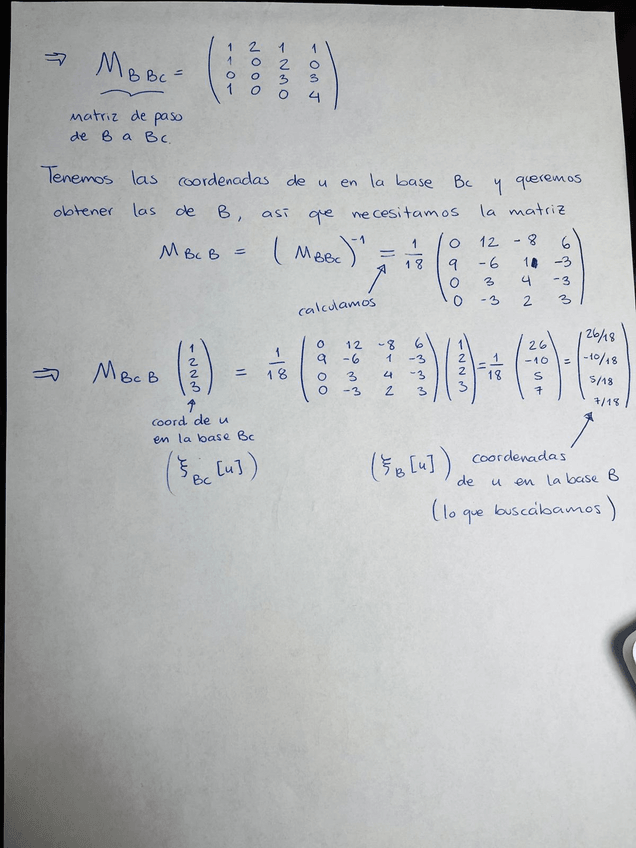 ⇒ M_{B Bc} = \begin{pmatrix} 1 & 2 & 1 & 1 \\ 1 & 0 & 2 & 0 \\ 0 & 0 & 3 & 3 \\ 1 & 0 & 0 & 4 \end{pmatrix}
matriz de paso
de B a Bc.
Tenemos las coordenadas de u en la base Bc y queremos
obtener las de B, así que necesitamos la matriz
M_{Bc B} = (M_{BBc})^{-1} = \frac{1}{18} \begin{pmatrix} 0 & 12 & -8 & 6 \\ 9 & -6 & 1 & -3 \\ 0 & 3 & 4 & -3 \\ 0 & -3 & 2 & 3 \end{pmatrix}
calculamos
⇒ M_{Bc B} \begin{pmatrix} 1 \\ 2 \\ 2 \\ 3 \end{pmatrix} = \frac{1}{18} \begin{pmatrix} 0 & 12 & -8 & 6 \\ 9 & -6 & 1 & -3 \\ 0 & 3 & 4 & -3 \\ 0 & -3 & 2 & 3 \end{pmatrix} \begin{pmatrix} 1 \\ 2 \\ 2 \\ 3 \end{pmatrix} = \frac{1}{18} \begin{pmatrix} 26 \\ -10 \\ 5 \\ 7 \end{pmatrix} = \begin{pmatrix} 26/18 \\ -10/18 \\ 5/18 \\ 7/18 \end{pmatrix}
coord de u
en la base Bc
(ξ_{Bc} [u])
(ξ_B [u]) coordenadas
de u en la base B
(lo que buscábamos)